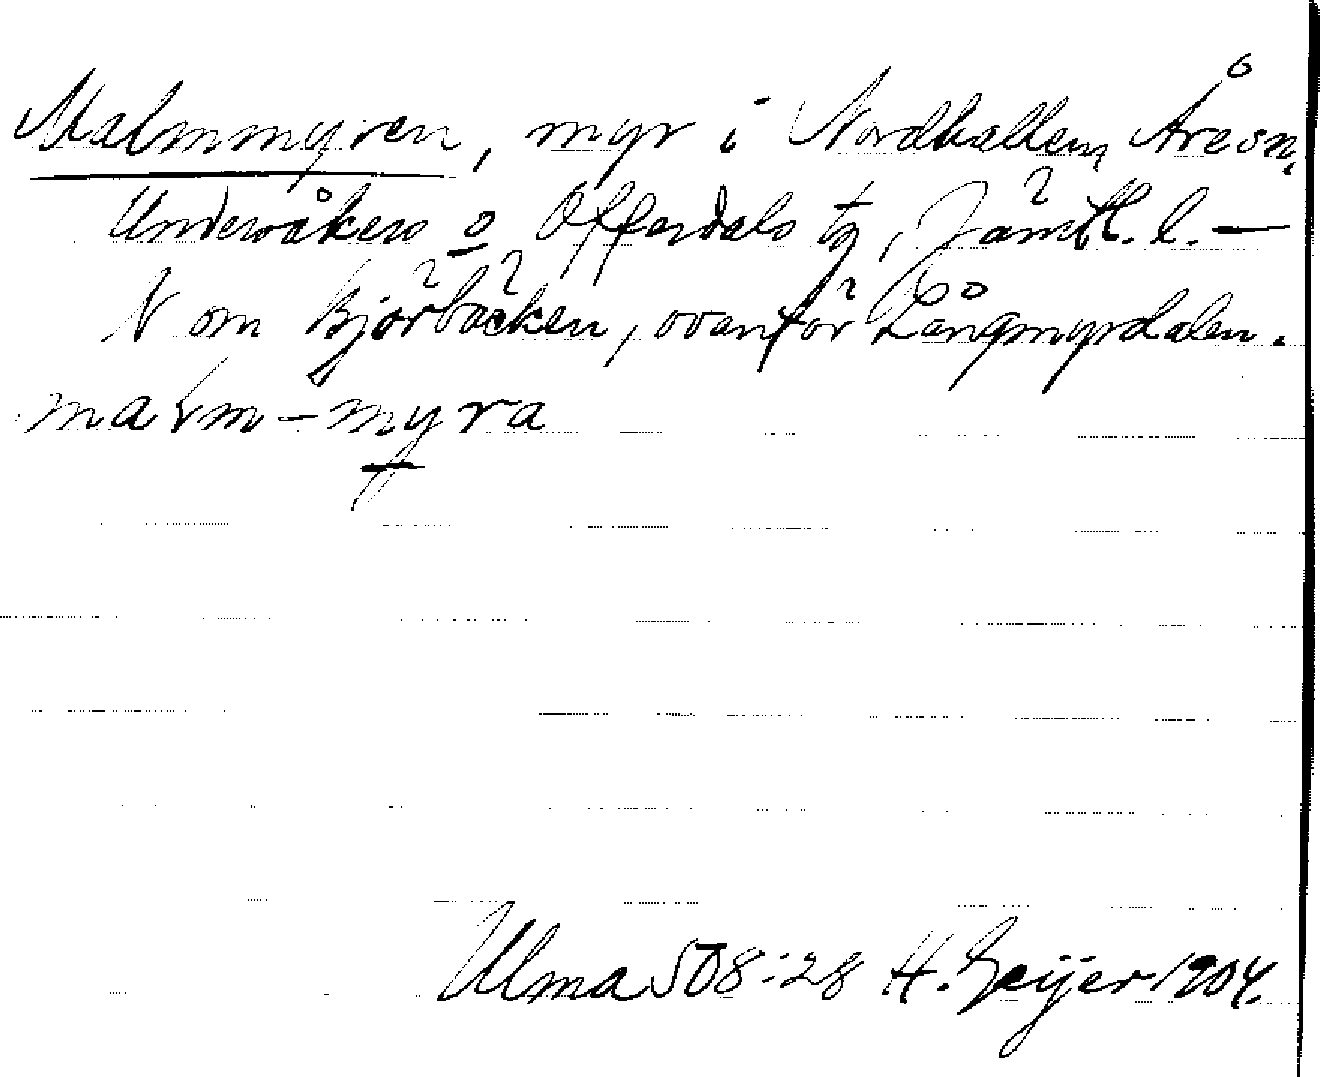 Malmmyren, myr i Nordhallen, Åre sn,
Undersåkers o Offerdals tg, Jämtl. l. —
N om Bjørbäcken, ovanför Långmyrdalen.
malm-myra
Ulma 508:28 H. Geijer 1904.